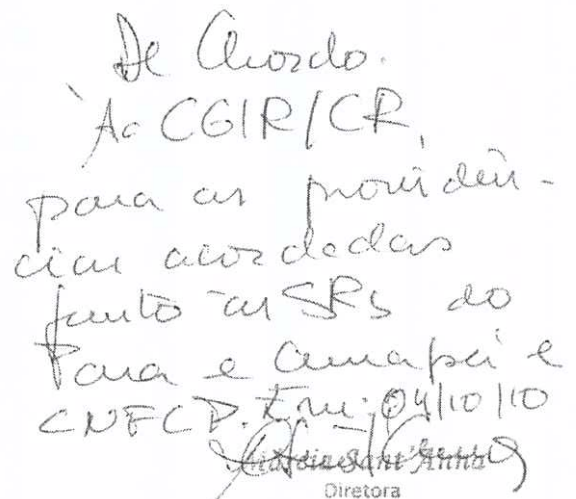 De Acordo.
À CGIR/CR,
para as providên-
cias acordadas
junto as SRs do
Pará e Amapá e
CNFCP. Em: 04/10/10
Sant'Anna
Diretora